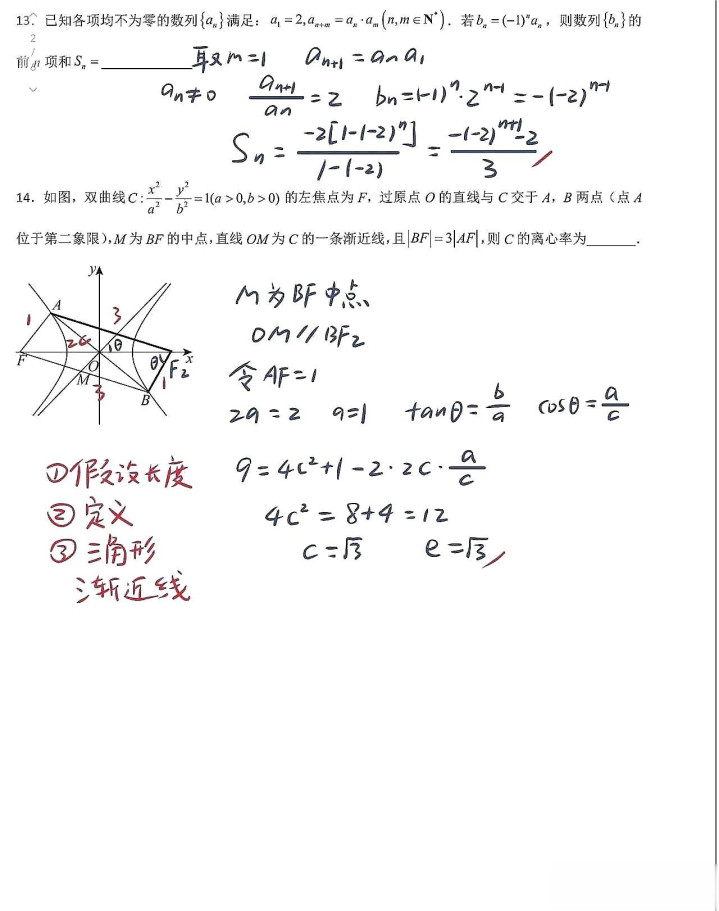 13. 已知各项均不为零的数列{aₙ}满足：a₁=2, aₙ₊ₘ=aₙ·aₘ(n,m∈N*)．若bₙ=(-1)ⁿaₙ，则数列{bₙ}的
2
前n项和Sₙ=__________ 取m=1 aₙ₊₁=aₙa₁
aₙ≠0 aₙ₊₁/aₙ=2 bₙ=(-1)ⁿ·2ⁿ⁻¹=-(-2)ⁿ⁻¹
Sₙ=-2[1-(-2)ⁿ]/1-(-2)=-(-2)ⁿ⁺¹-2/3
14. 如图，双曲线C:x²/a²-y²/b²=1(a>0,b>0)的左焦点为F，过原点O的直线与C交于A，B两点（点A
位于第二象限），M为BF的中点，直线OM为C的一条渐近线，且|BF|=3|AF|，则C的离心率为______．
y
A
1
3
2a
θ
F
O
θ
F₂
x
M
3
1
B
M为BF中点
OM//BF₂
令AF=1
2a=2 a=1 tanθ=b/a cosθ=a/c
①假设长度 9=4c²+1-2·2c·a/c
②定义 4c²=8+4=12
③三角形 c=√3 e=√3
渐近线